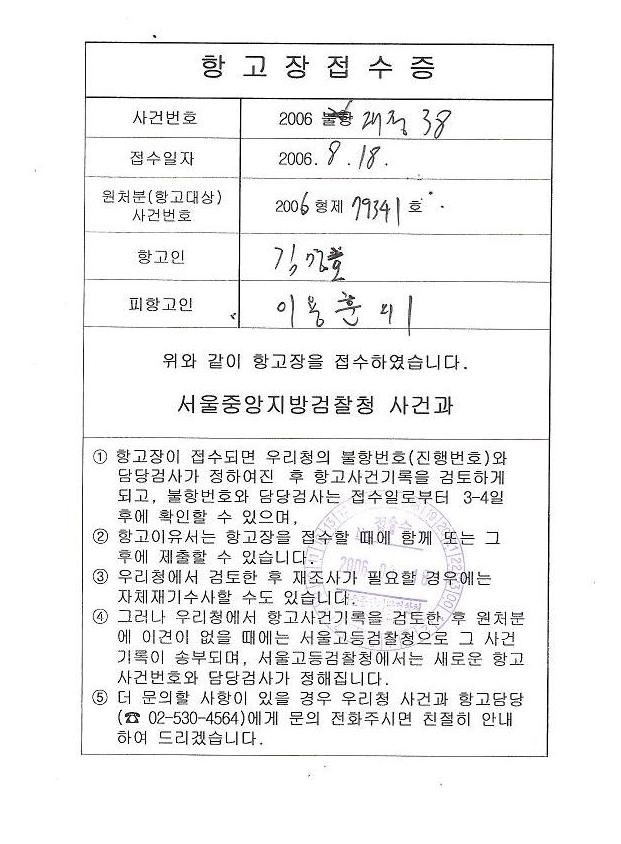 항고장접수증
사건번호
2006 불항 재정 38
접수일자
2006. 8. 18.
원처분(항고대상)
사건번호
2006 형제 79341 호
항고인
피항고인
이용훈 외 1
위와 같이 항고장을 접수하였습니다.
서울중앙지방검찰청 사건과
① 항고장이 접수되면 우리청의 불항번호(진행번호)와
담당검사가 정하여진 후 항고사건기록을 검토하게
되고, 불항번호와 담당검사는 접수일로부터 3-4일
후에 확인할 수 있으며,
② 항고이유서는 항고장을 접수할 때에 함께 또는 그
후에 제출할 수 있습니다.
③ 우리청에서 검토한 후 재조사가 필요할 경우에는
자체재기수사할 수도 있습니다.
④ 그러나 우리청에서 항고사건기록을 검토한 후 원처분
에 이견이 없을 때에는 서울고등검찰청으로 그 사건
기록이 송부되며, 서울고등검찰청에서는 새로운 항고
사건번호와 담당검사가 정해집니다.
⑤ 더 문의할 사항이 있을 경우 우리청 사건과 항고담당
(☎ 02-530-4564)에게 문의 전화주시면 친절히 안내
하여 드리겠습니다.